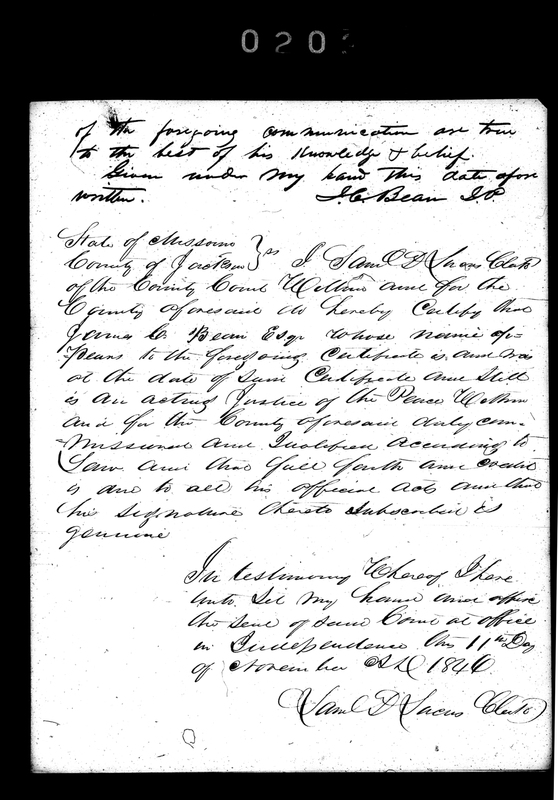 020
of the foregoing communication are true
to the best of his Knowledge & belief.
Given under my hand this date afore
written. J. C. Bean J.P.
State of Missouri
County of Jackson } ss I Saml D Lucas Clerk
of the County Court Within and for the
County aforesaid do hereby Certify that
James C. Bean Esqr whose name ap-
pears to the foregoing Certificate is and was
at the date of said Certificate and Still
is an acting Justice of the Peace Within
and for the County aforesaid duly com-
missioned and Qualified according to
Law and that full faith and credit
is due to all his official acts and that
his signature thereto subscribed is
genuine
In testimony Whereof I here
unto Set my hand and affix
the Seal of said Court at office
in Independence this 11th Day
of November AD 1846.
Saml D Lucas Clerk